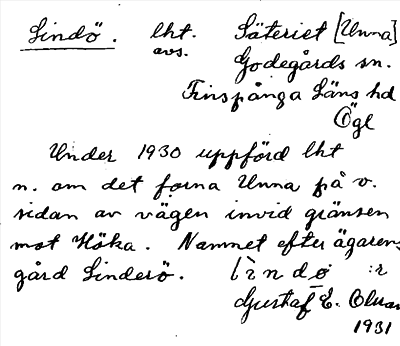 Lindö. lht. Säteriet [Unna]
avs. Godegårds sn.
Finspånga Läns hd
Ögl
Under 1930 uppförd lht
n. om det forna Unna på v.
sidan av vägen invid gränsen
mot Höka. Namnet efter ägarens
gård Linderö. lìndö :r
Gustaf E.
1931